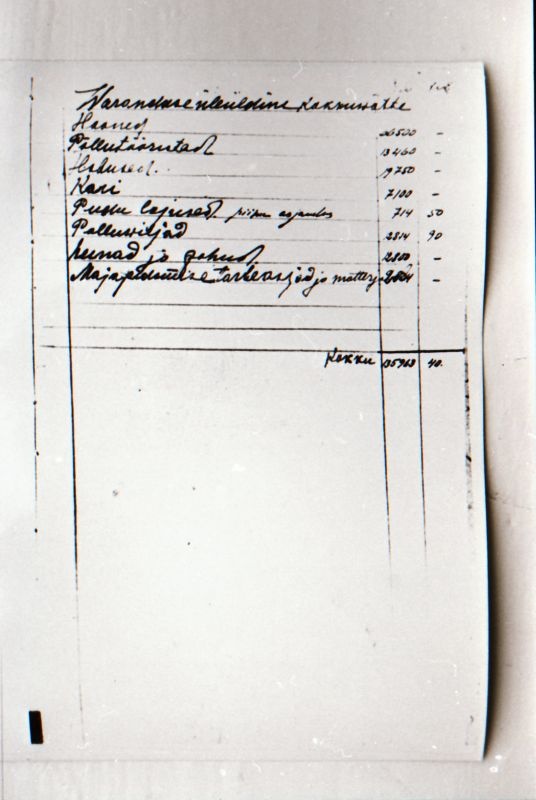 Varanduse üleüldine kokkuvõtte
Hooned 26500 –
Põllutööriistad 13460 –
Hobused. 19750 –
Kari 7100 –
Pudu lojused 714 50
Põlluviljad 2814 90
heinad ja põhud 12800 –
Majapidamise tarbeasjad ja –
Kokku 135968 40.